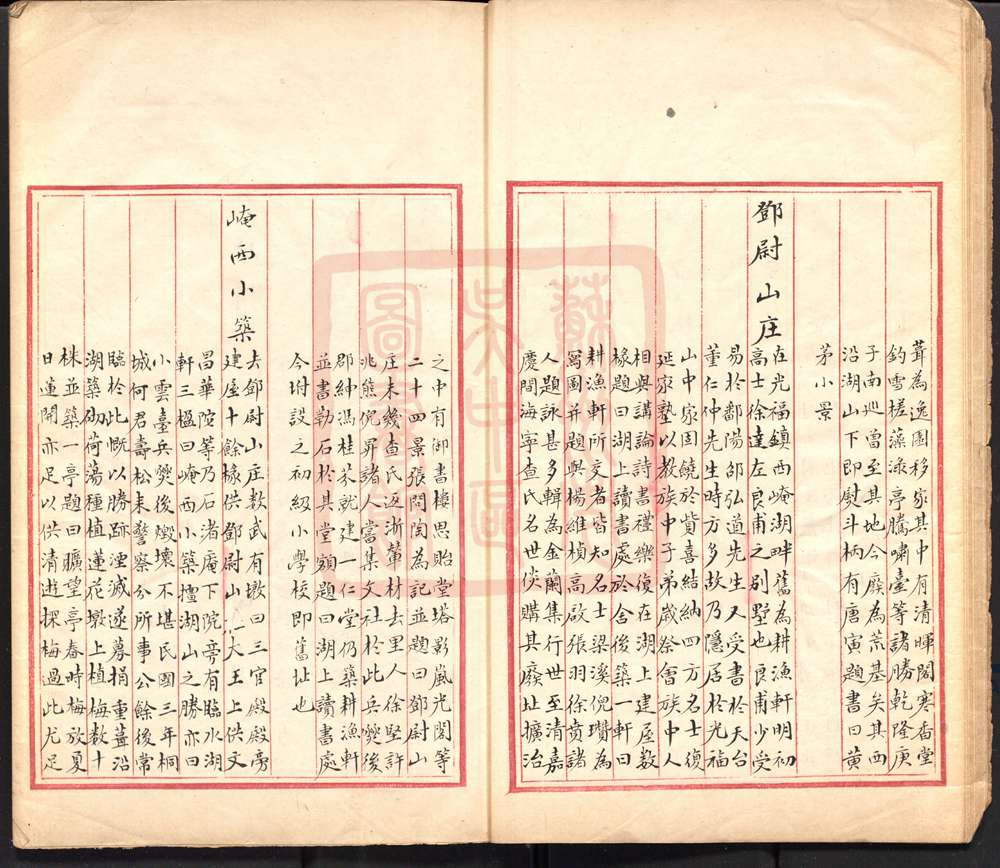 葺為逸園移家其中有清暉閣寒香堂
釣雪槎藻渌亭騰嘯臺等諸勝乾隆庚
子南巡曾至其地今廢為荒基矣其西
沿湖山下即熨斗柄有唐寅題書曰黃
茅小景
鄧尉山庄
在光福鎮西崦湖畔舊為耕漁軒明初
高士徐達左良甫之別墅也良甫少受
易於鄱陽邵弘道先生又受書於天台
董仁仲先生時方多故乃隱居於光福
山中家固饒於貲喜結納四方名士復
延家塾以教族中子弟歲祭會族中人
相與講論詩書禮樂復在湖上建屋數
椽題曰湖上讀書處於舍後築一軒曰
耕漁軒所交者皆知名士梁溪倪瓚為
寫圖并題與楊維楨高啟張羽徐賁諸
人題詠甚多輯為金蘭集行世至清嘉
慶間海寧查氏名世倓購其廢址擴治
之中有御書樓思貽堂塔影嵐光閣等
二十四景張問陶為記並題曰鄧尉山
庄未幾查氏返浙輦材去里人徐堅許
兆熊倪昇諸人當集文社於此兵燹後
郡紳馮桂芬就建一仁堂仍築耕漁軒
並書勒石於其堂額題曰湖上讀書處
今坿設之初級小學校即舊址也
崦西小築
去鄧尉山庄數武有墩曰三官殿殿旁
建屋十餘椽供鄧尉山六大王上供文
昌華陀等乃石渚庵下院旁有臨水湖
軒三楹曰崦西小築擅湖山之勝亦曰
小雲臺兵燹後燬壞不堪民國三年桐
城何君壽松来警察分所事公餘後常
臨於此慨以勝跡湮滅遂募捐重葺沿
湖築砌荷蕩種植蓮花墩上植梅数十
株並築一亭題曰曠望亭春時梅放夏
日蓮開亦足以供清遊探梅過此尤足